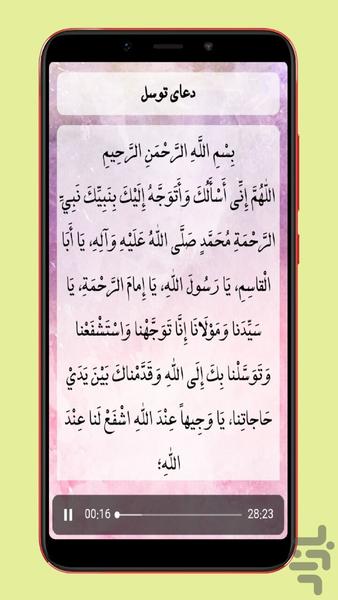 دعای توسل
بِسْمِ اللَّهِ الرَّحْمَنِ الرَّحِيمِ
اللَّهُمَّ إِنِّى أَسْأَلُكَ وَأَتَوَجَّهُ إِلَيْكَ بِنَبِيِّكَ نَبِيِّ
الرَّحْمَةِ مُحَمَّدٍ صَلَّى اللهُ عَلَيْهِ وَآلِهِ، يَا أَبَا
الْقاسِمِ، يَا رَسُولَ اللهِ، يَا إِمامَ الرَّحْمَةِ، يَا
سَيِّدَنا وَمَوْلَانَا إِنَّا تَوَجَّهْنا وَاسْتَشْفَعْنا
وَتَوَسَّلْنا بِكَ إِلَى اللهِ وَقَدَّمْناكَ بَيْنَ يَدَيْ
حَاجاتِنا، يَا وَجِيهاً عِنْدَ اللهِ اشْفَعْ لَنا عِنْدَ
اللهِ؛
00:16 28:23
بازار